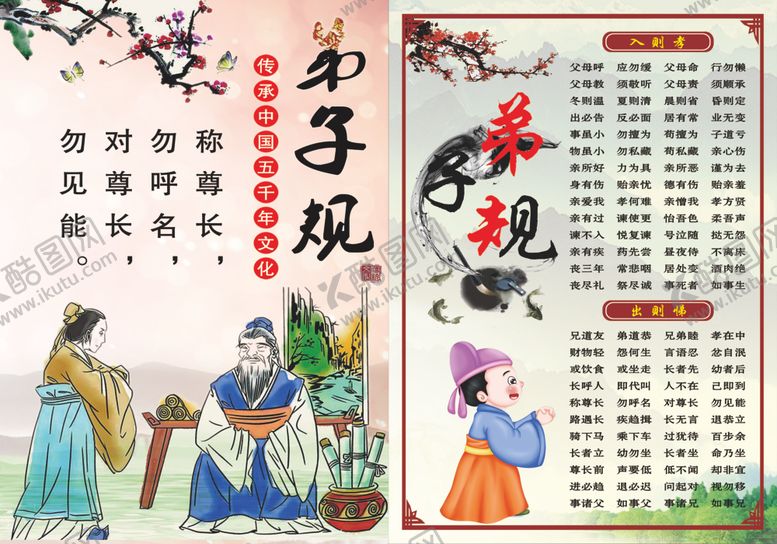 弟子规
传承中国五千年文化
称尊长，
勿呼名，
对尊长，
勿见能。
弟子规
入则孝
父母呼 应勿缓 父母命 行勿懒
父母教 须敬听 父母责 须顺承
冬则温 夏则清 晨则省 昏则定
出必告 反必面 居有常 业无变
事虽小 勿擅为 苟擅为 子道亏
物虽小 勿私藏 苟私藏 亲心伤
亲所好 力为具 亲所恶 谨为去
身有伤 贻亲忧 德有伤 贻亲羞
亲爱我 孝何难 亲憎我 孝方贤
亲有过 谏使更 怡吾色 柔吾声
谏不入 悦复谏 号泣随 挞无怨
亲有疾 药先尝 昼夜侍 不离床
丧三年 常悲咽 居处变 酒肉绝
丧尽礼 祭尽诚 事死者 如事生
出则悌
兄道友 弟道恭 兄弟睦 孝在中
财物轻 怨何生 言语忍 忿自泯
或饮食 或坐走 长者先 幼者后
长呼人 即代叫 人不在 己即到
称尊长 勿呼名 对尊长 勿见能
路遇长 疾趋揖 长无言 退恭立
骑下马 乘下车 过犹待 百步余
长者立 幼勿坐 长者坐 命乃坐
尊长前 声要低 低不闻 却非宜
进必趋 退必迟 问起对 视勿移
事诸父 如事父 事诸兄 如事兄
酷图网
www.ikutu.com